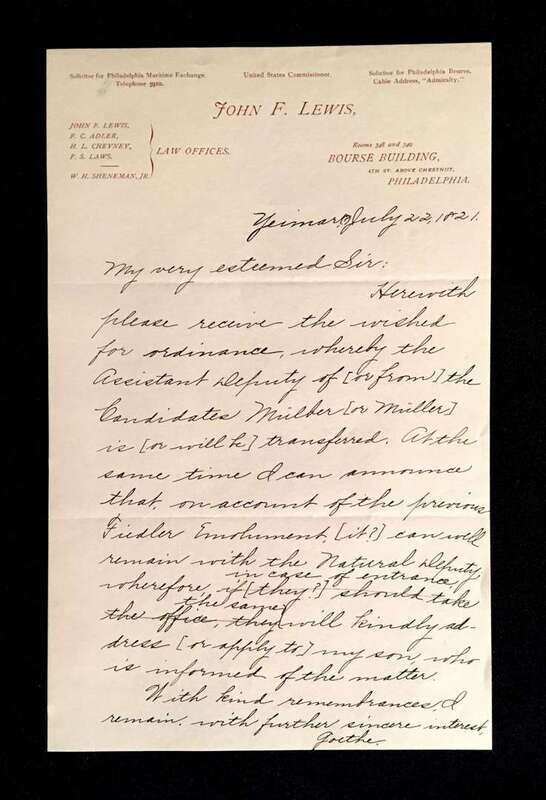 Solicitor for Philadelphia Maritime Exchange.
Telephone 3920.
United States Commissioner.
Solicitor for Philadelphia Bourse.
Cable Address, "Admiralty."
JOHN F. LEWIS,
JOHN F. LEWIS,
F. C. ADLER,
H. L. CHEYNEY,
F. S. LAWS.
W. H. SHENEMAN, JR.
LAW OFFICES.
Rooms 348 and 349
BOURSE BUILDING,
4TH ST. ABOVE CHESTNUT,
PHILADELPHIA.
July 22, 1821.
My very esteemed Sir:
Herewith
please receive the wished
for ordinance, whereby the
Assistant Deputy of [or from] the
Candidates Mülber [or Müller]
is [or will be] transferred. At the
same time I can announce
that, on account of the previous
Fiedler Emolument, [it?] can well
remain with the Natural Deputy,
in case of entrance,
wherefore, if [they?] should take
the same
the office, they will kindly ad-
dress [or apply to] my son, who
is informed of the matter.
With kind remembrances, I
remain, with further sincere interest,
Goethe.